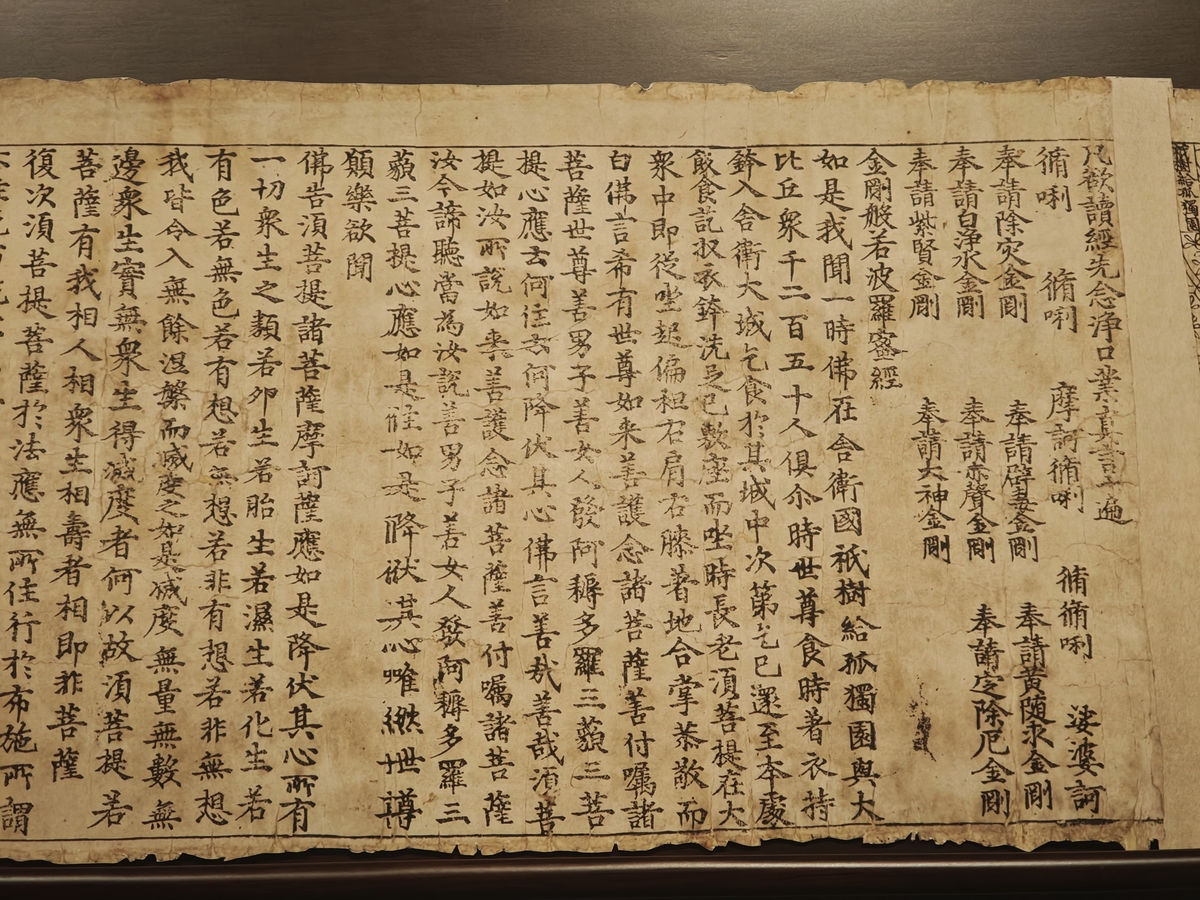 凡欲讀經先念淨口業真言一遍
脩唎 脩唎 摩訶脩唎 脩脩唎 娑婆訶
奉請除灾金剛 奉請辟毒金剛 奉請黃随求金剛
奉請白净水金剛 奉請赤聲金剛 奉請定除厄金剛
奉請紫賢金剛 奉請大神金剛
金剛般若波羅蜜經
如是我聞一時佛在舍衛國祇樹給孤獨園與大
比丘衆千二百五十人俱尒時世尊食時著衣持
鉢入舍衛大城乞食於其城中次第乞已還至本處
飯食訖収衣鉢洗足已敷座而坐時長老須菩提在大
衆中即從坐起偏袒右肩右膝著地合掌恭敬而
白佛言希有世尊如来善護念諸菩薩善付囑諸
菩薩世尊善男子善女人發阿耨多羅三藐三菩
提心應云何住云何降伏其心佛言善哉善哉須菩
提如汝所說如来善護念諸菩薩善付囑諸菩薩
汝今諦聽當為汝說善男子善女人發阿耨多羅三
藐三菩提心應如是住如是降伏其心唯然世尊
願樂欲聞
佛告須菩提諸菩薩摩訶薩應如是降伏其心所有
一切衆生之類若卵生若胎生若濕生若化生若
有色若無色若有想若無想若非有想若非無想
我皆令入無餘涅槃而滅度之如是滅度無量無數無
邊衆生實無衆生得滅度者何以故須菩提若
菩薩有我相人相衆生相壽者相即非菩薩
復次須菩提菩薩於法應無所住行於布施所謂